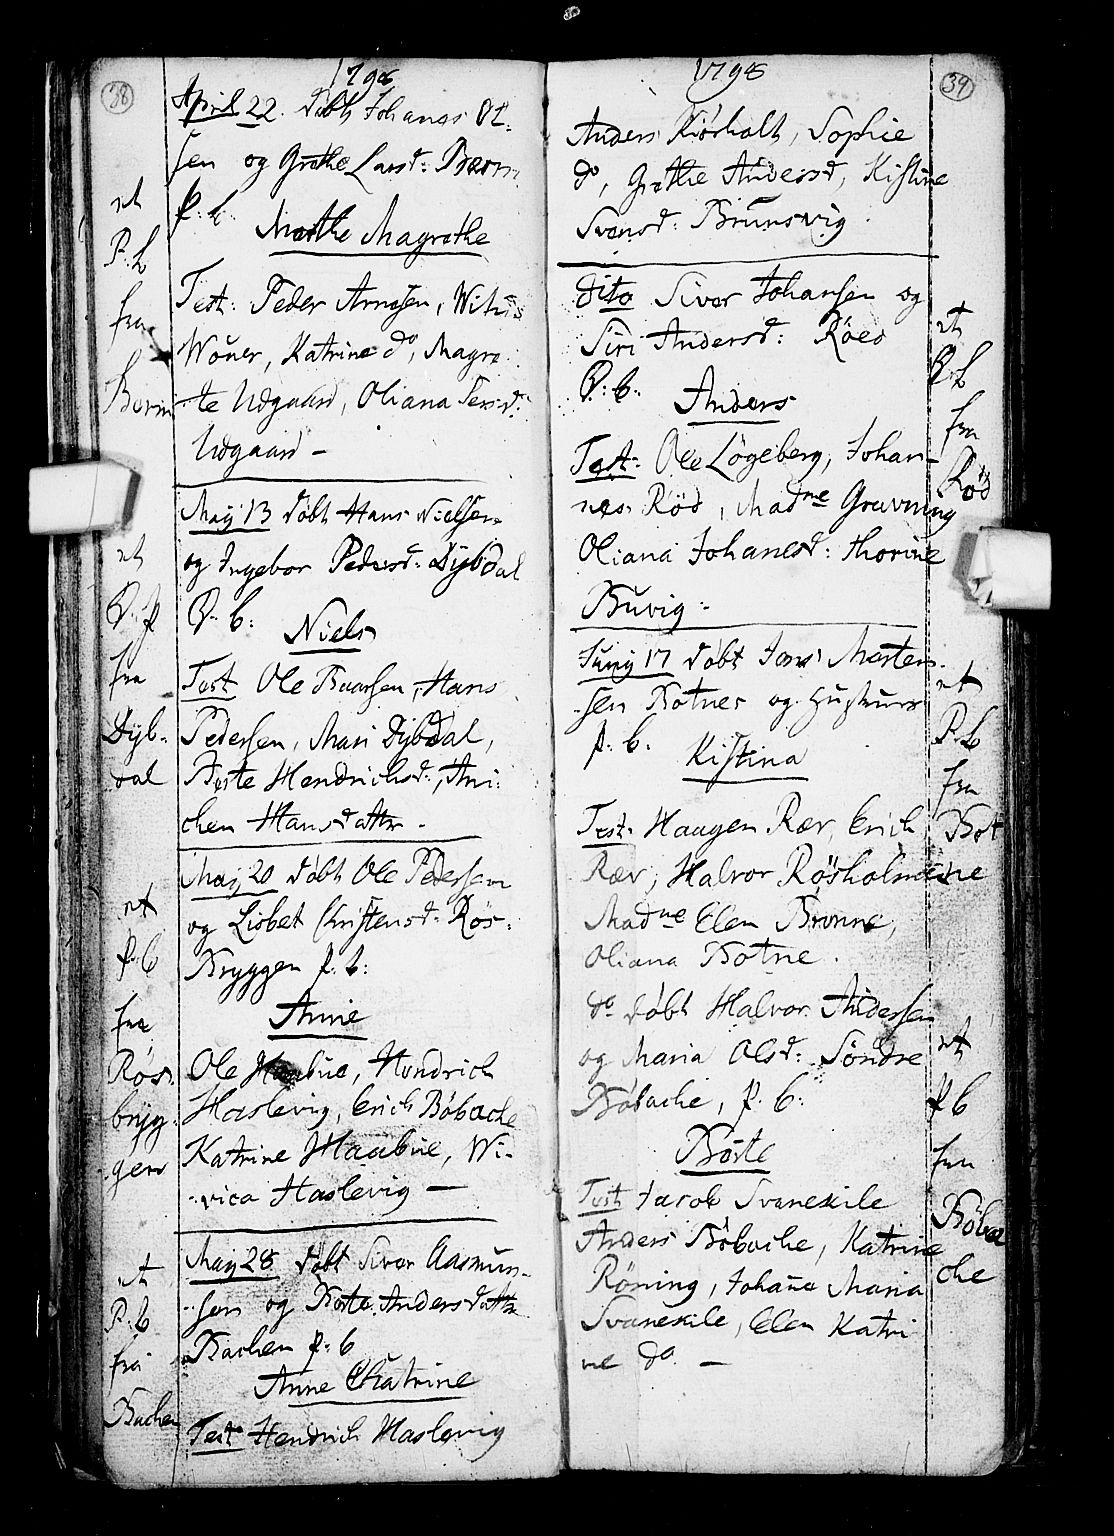 38
1798
April 22. døbt Johanes Ol-
sen og Grethe Larsd: Barn
P: b:
Marthe Magrethe
Test: Peder Arnesen,
Woner, Katrine do, Magre
te Udgaard, Oliana
Udgaard -
ut
P. b
fra
May 13 døbt Hans Nielsen
og Ingebor Pedersd: Dybdal
P. b:
Niels
Test Ole Baarsen, Hans
Pedersen, Mari Dybdal,
Børte Hendrichsd:, Ani-
chen Hansdattr -
ut
P. b
fra
Dyb-
dal
May 20 døbt Ole Pedersen
og Lisbet Christensd: Rös-
Bryggen P. b:
Anne
Ole Haabue, Hendrich
Haslevig, Erich Böbache
Katrine Haabue, Wi-
vica Haslevig —
ut
P. b
fra
Rös
bryg-
gen
May 28 døbt Siver Aasmun-
sen og Børte Andersdattr
Bachen P. b
Anne Chatrine
Test Hendrich Haslevig
ut
P. b
fra
Bachen
39
1798
Anders Kiörholt, Sophie
do, Grethe Andersd, Kistine
Svensd: Brunsvig.
dito Siver Johansen og
Siri Andersd: Röed
P: b:
Anders
Test: Ole Løgeberg, Johan-
nes Röd, Madme Gravning
Oliana Johanesd: Thorine
Buvig -
ut
P. b
fra
Röd
Juny 17 døbt Jens Morten-
sen Botner og Hustrues
P. b.
Kistina
Test: Haagen Rær, Erich
Rær, Halvor Rösholmen
Madme Elen Bronne,
Oliana Botne.
ut
P. b
fra
Bot
ne
do døbt Halvor Andersen
og Maria Olsd: Söndre
Böbache, P. b:
Börte
Test Jacob Svanekile
Anders Böbache, Katrine
Röning, Johane Maria
Svanekile, Elen Katri
ne do. —
ut
P b
fra
Böba
che